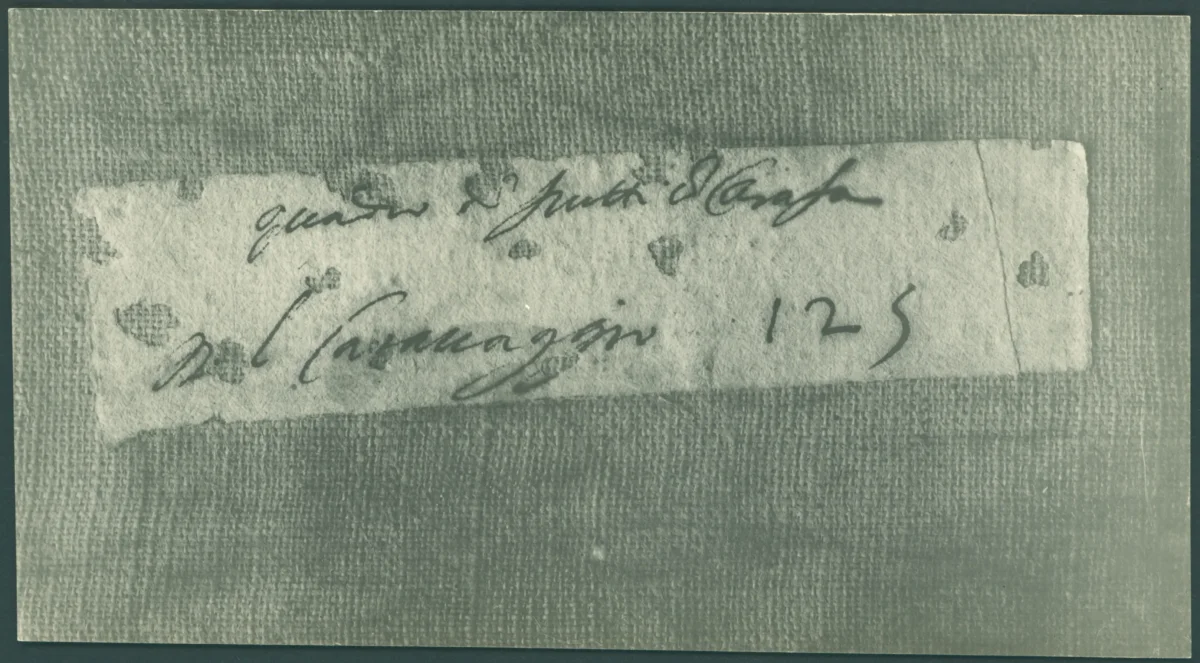 quadro di frutti & Carafa
Del Carauaggio 125